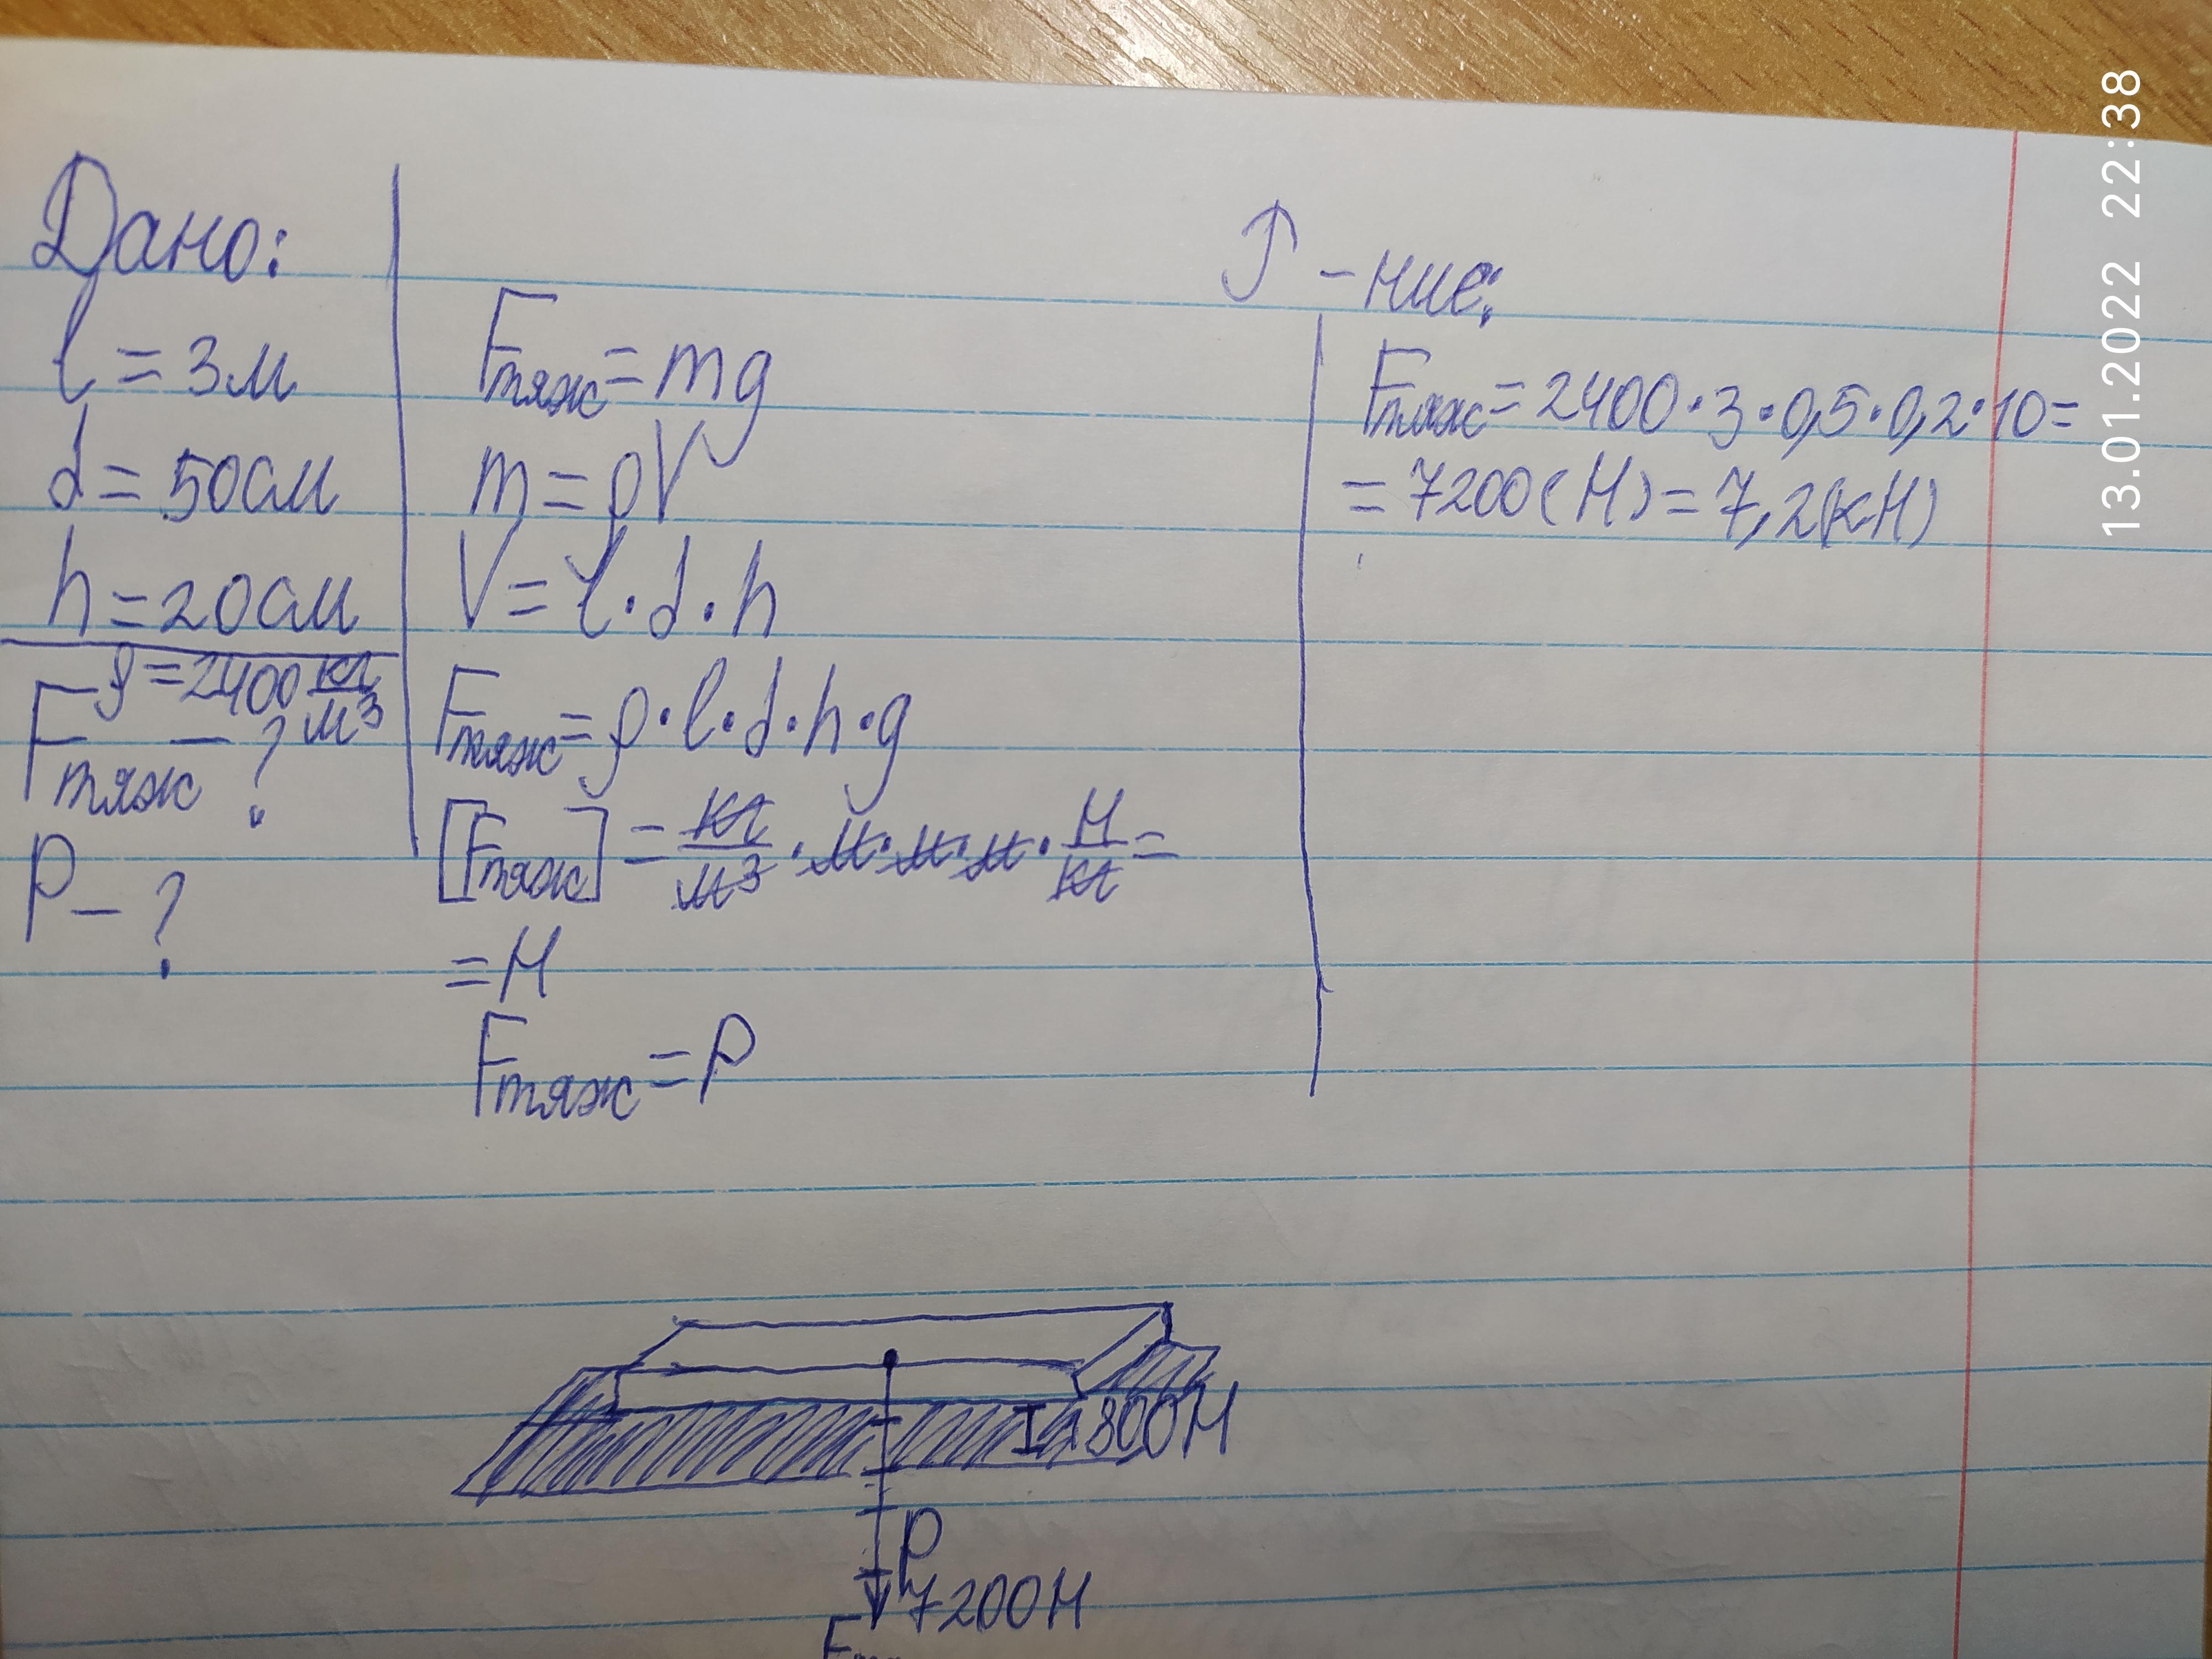 Дано:
l = 3м
d = 50см
h = 20см
ρ = 2400 кг/м³
Fтяж - ?
P - ?
Fтяж = mg
m = ρV
V = l · d · h
Fтяж = ρ · l · d · h · g
[Fтяж] = кг/м³ · м · м · м · Н/кг =
= Н
Fтяж = P
↑ - ние:
Fтяж = 2400 · 3 · 0,5 · 0,2 · 10 =
= 7200 (Н) = 7,2 (кН)
1800Н
P
7200Н
13.01.2022 22:38